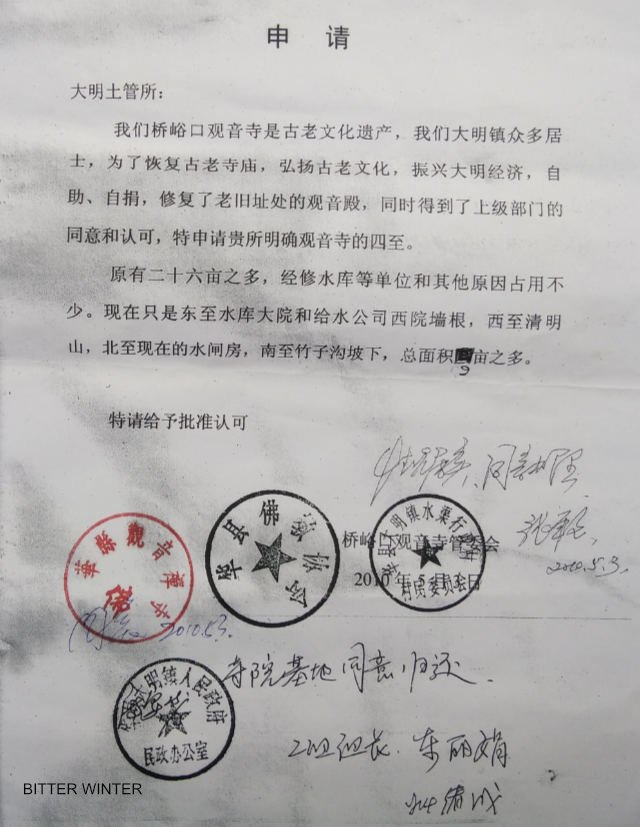 申 请
大明土管所：
我们桥峪口观音寺是古老文化遗产，我们大明镇众多居
士，为了恢复古老寺庙，弘扬古老文化，振兴大明经济，自
助、自捐，修复了老旧址处的观音殿，同时得到了上级部门的
同意和认可，特申请贵所明确观音寺的四至。
原有二十六亩之多，经修水库等单位和其他原因占用不
少。现在只是东至水库大院和给水公司西院墙根，西至清明
山，北至现在的水闸房，南至竹子沟坡下，总面积9亩之多。
特请给予批准认可
桥峪口观音寺管委会
2010年5月 日
2010.5.3.
華縣觀音禪寺
佛
华县佛教协会
大明镇水渠行政村
村民委员会
同意 2010.5.3.
大明镇人民政府
民政办公室
寺院基地同意归还.
二组组长.东丽娟
BITTER WINTER